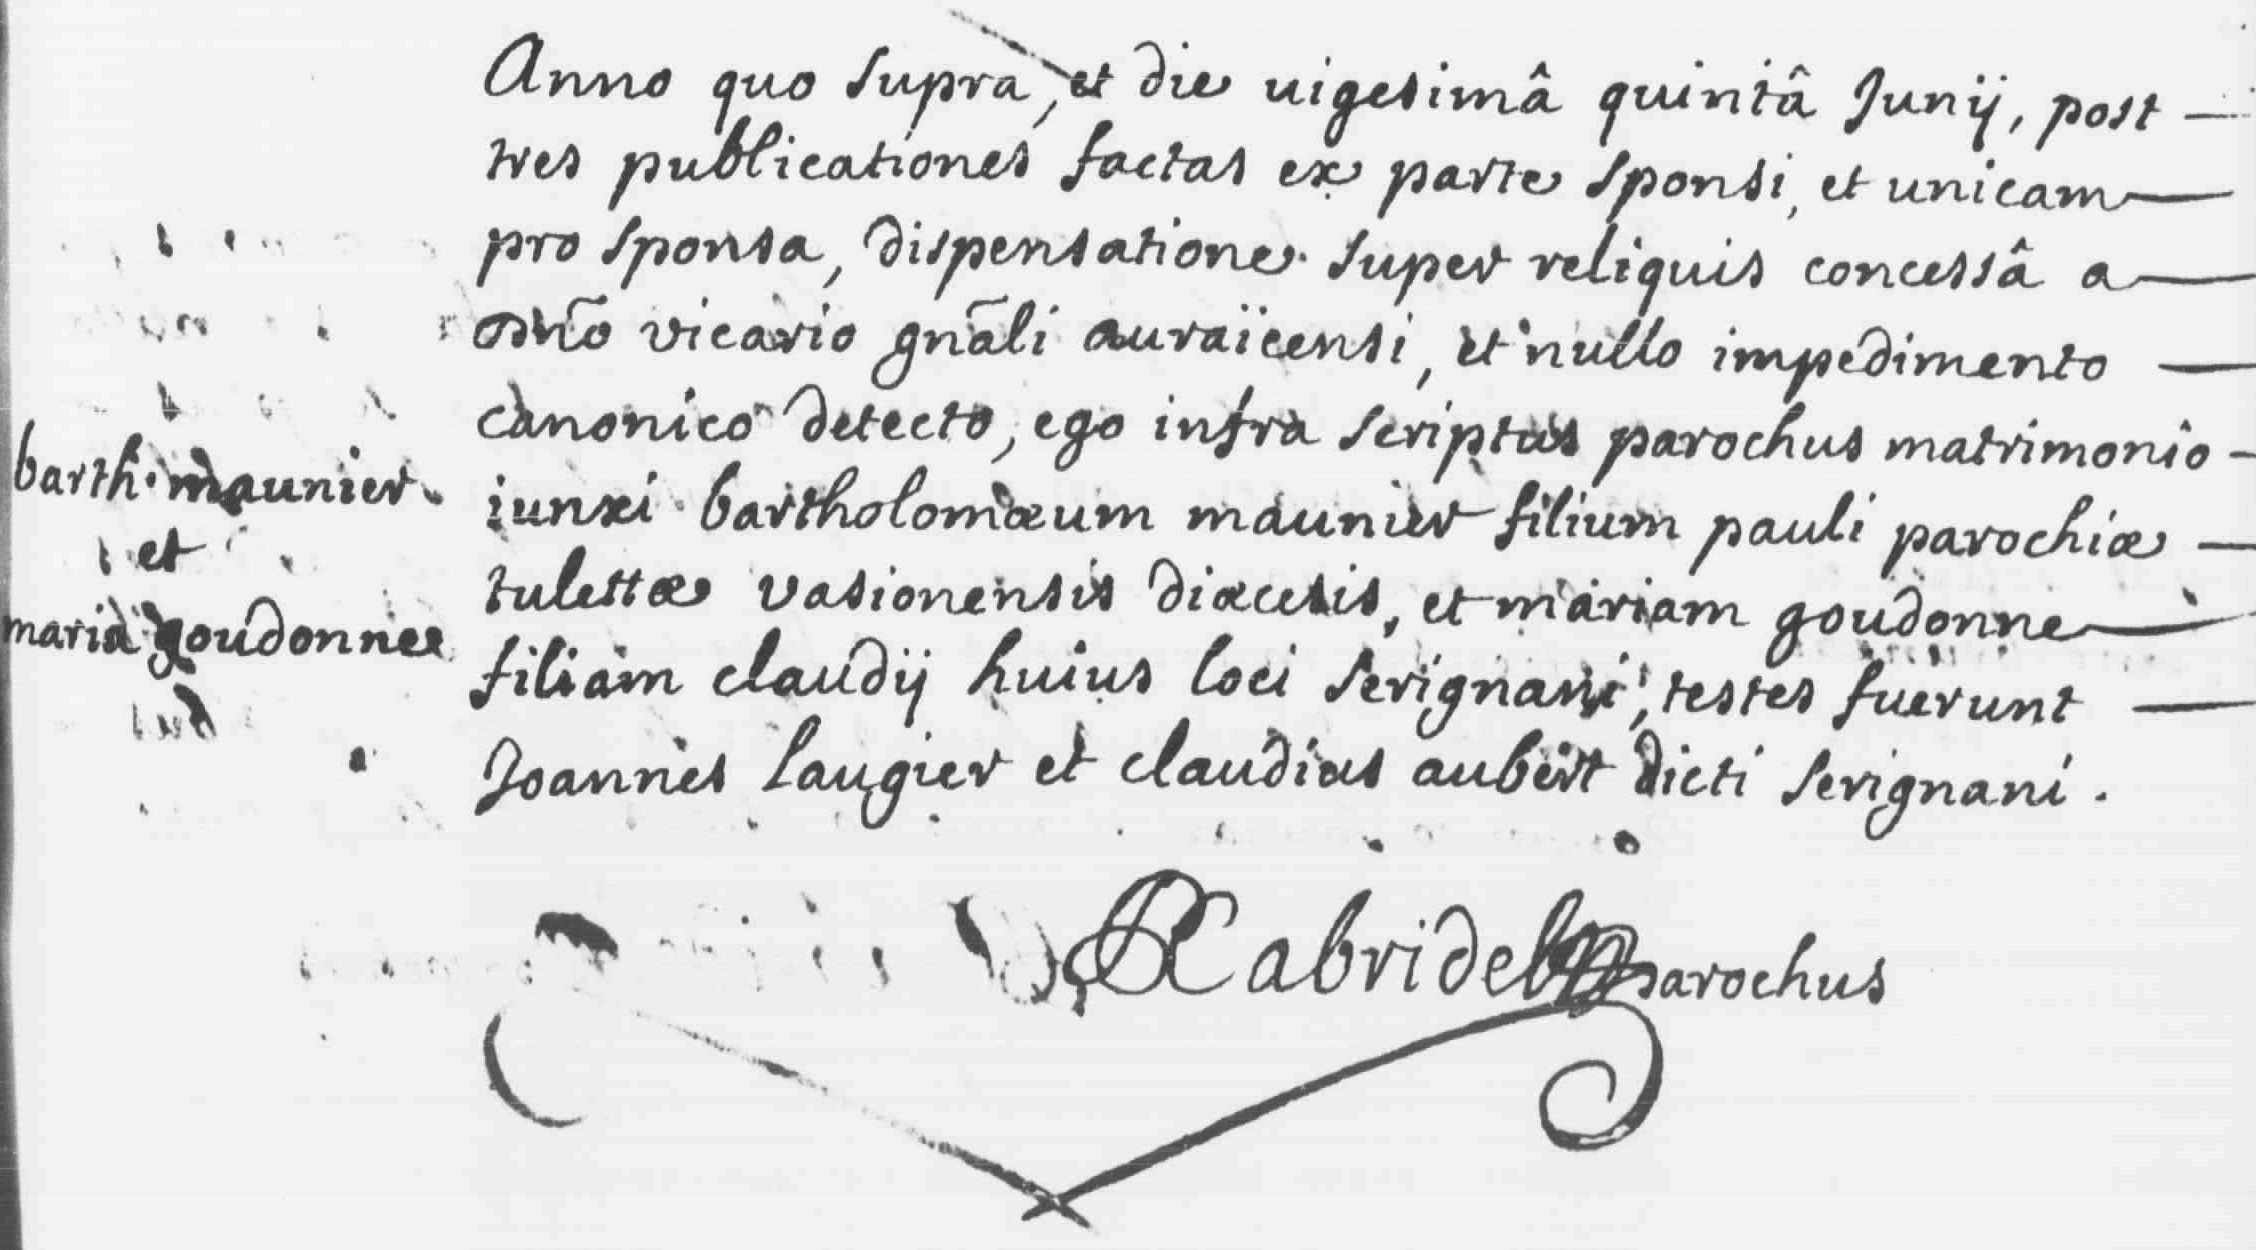 Anno quo supra, et die uigesimâ quintâ Junij, post
tres publicationes factas ex parte sponsi, et unicam
pro sponsa, dispensatione super reliquis concessâ a
dño vicario gñali auraïcensi, et nullo impedimento
canonico detecto, ego infra scriptus parochus matrimonio
iunxi bartholomæum maunier filium pauli parochiæ
tulettæ vasionensis diæcesis, et mariam goudonne
filiam claudij huius loci serignani, testes fuerunt
Joannes laugier et claudius aubert dicti serignani.
barth. maunier
et
maria goudonnee
Cabridel parochus